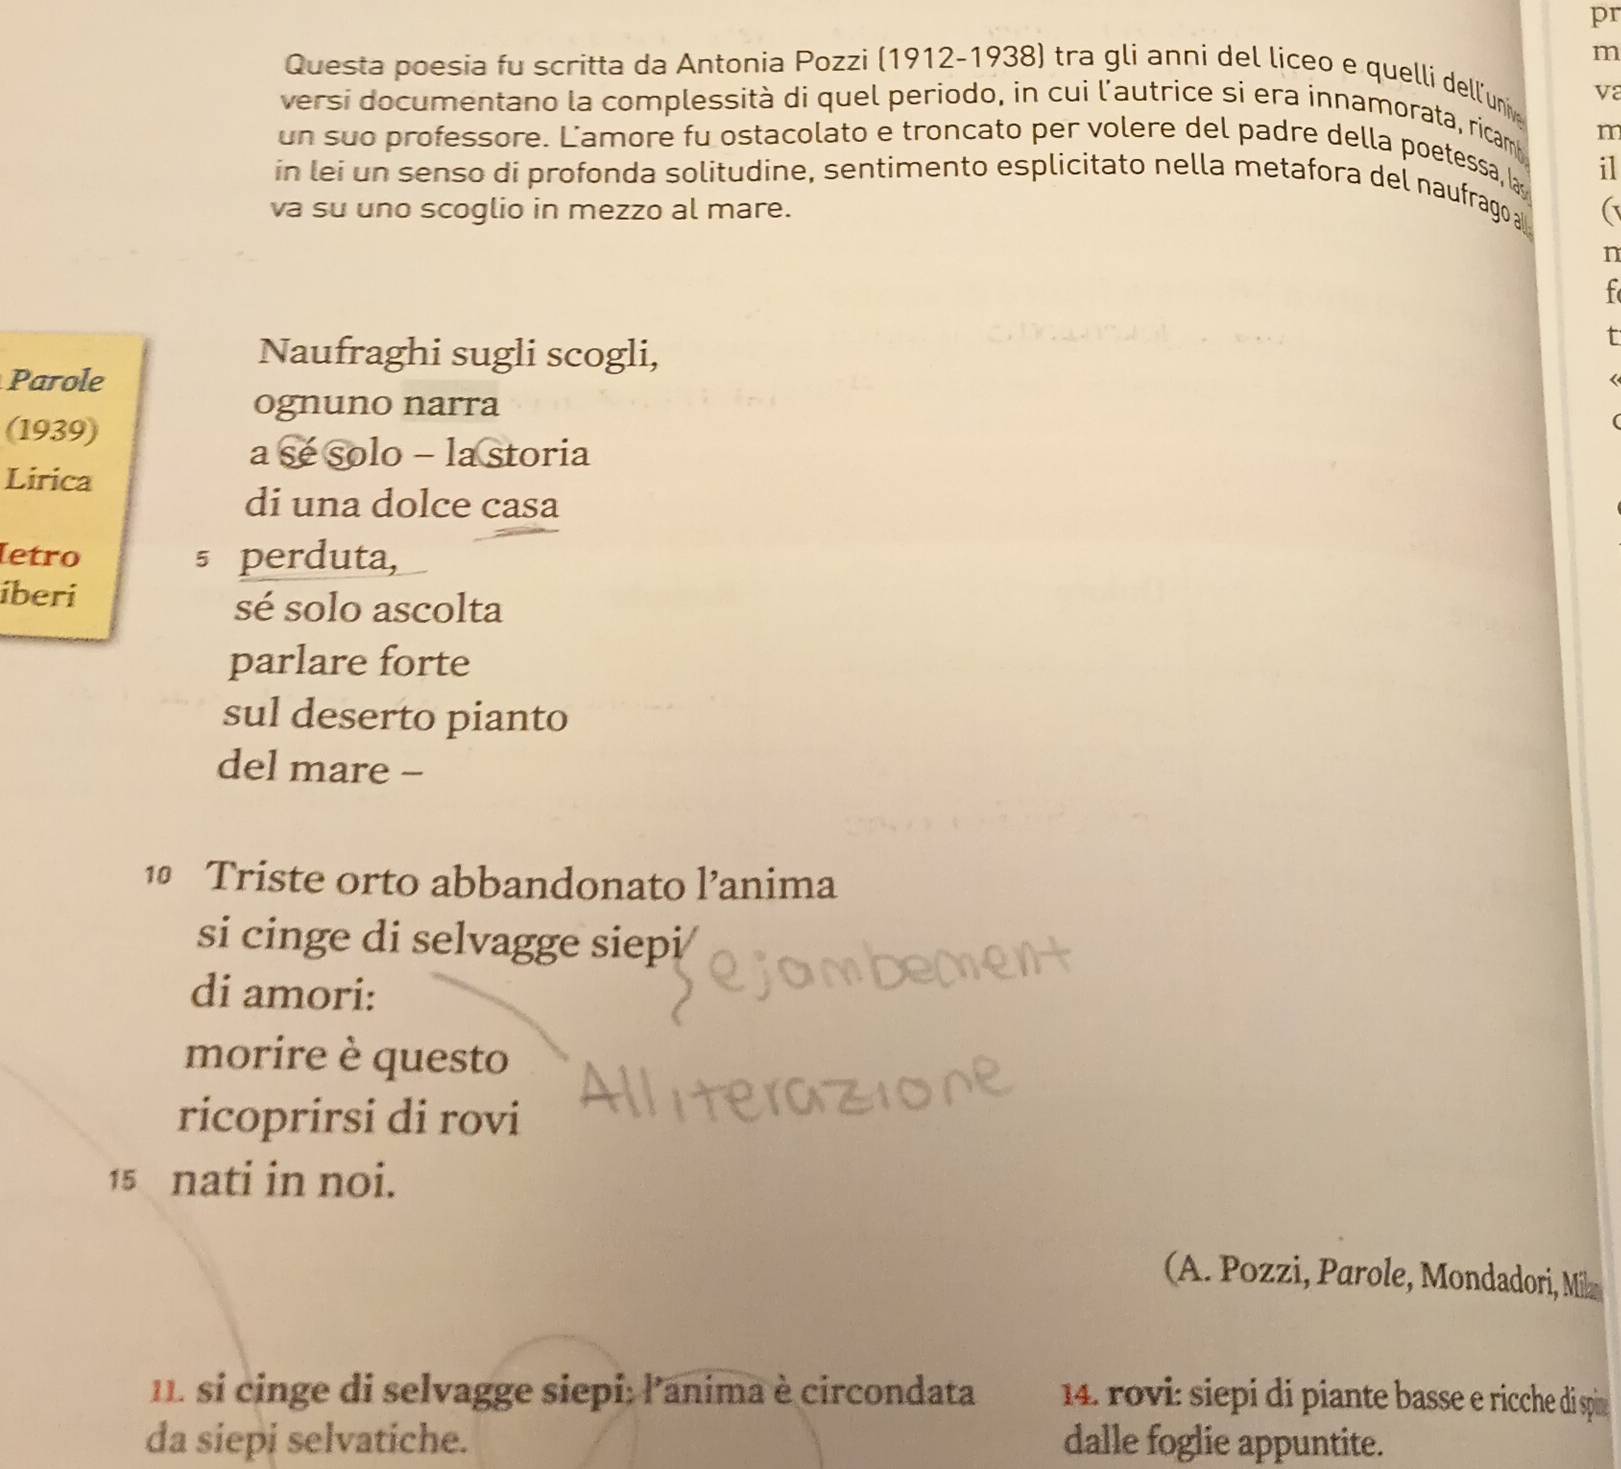 Questa poesia fu scritta da Antonia Pozzi (1912-1938) tra gli anni del liceo e quelli dell'unive
versi documentano la complessità di quel periodo, in cui l'autrice si era innamorata, ricamb
un suo professore. L'amore fu ostacolato e troncato per volere del padre della poetessa, las
in lei un senso di profonda solitudine, sentimento esplicitato nella metafora del naufrago al
va su uno scoglio in mezzo al mare.
Parole
(1939)
Lirica
etro
iberi
Naufraghi sugli scogli,
ognuno narra
a sé solo – la storia
di una dolce casa
5 perduta,
sé solo ascolta
parlare forte
sul deserto pianto
del mare –
10 Triste orto abbandonato l'anima
si cinge di selvagge siepi/
ejambement
di amori:
morire è questo
Alliterazione
ricoprirsi di rovi
15 nati in noi.
(A. Pozzi, Parole, Mondadori, Milan
11. si cinge di selvagge siepi: l'anima è circondata
da siepi selvatiche.
14. rovi: siepi di piante basse e ricche di spine
dalle foglie appuntite.
pr
m
va
m
il
(v
n
f
t
«